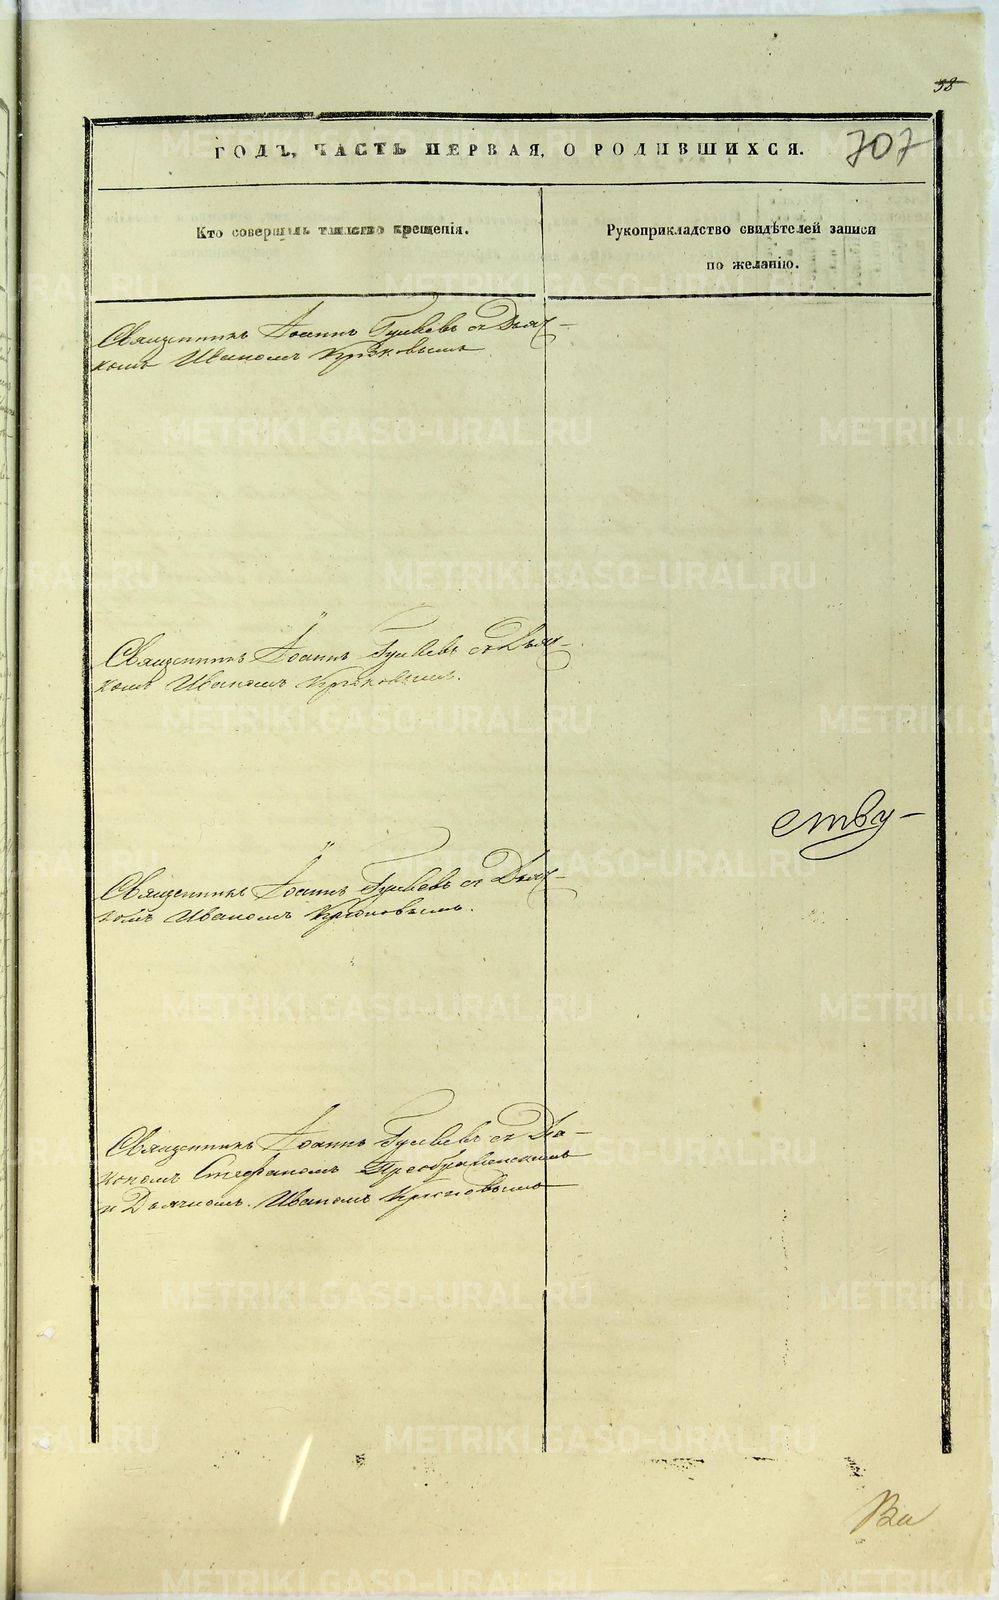 58
ГОДЪ, ЧАСТЬ ПЕРВАЯ, О РОДИВШИХСЯ.
707
Кто совершалъ таинство крещенія.
Рукоприкладство свидѣтелей записи
по желанію.
Священникъ Іоаннъ Гуляевъ съ Дьяч-
комъ Иваномъ Крюковымъ
Священникъ Іоаннъ Гуляевъ съ Дьяч-
комъ Иваномъ Крюковымъ.
ству-
Священникъ Іоаннъ Гуляевъ съ Дьяч-
комъ Иваномъ Крюковымъ.
Священникъ Іоаннъ Гуляевъ съ Діа-
кономъ Стефаномъ Преображенскимъ
и Дьячкомъ Иваномъ Крюковымъ
METRIKI.GASO-URAL.RU